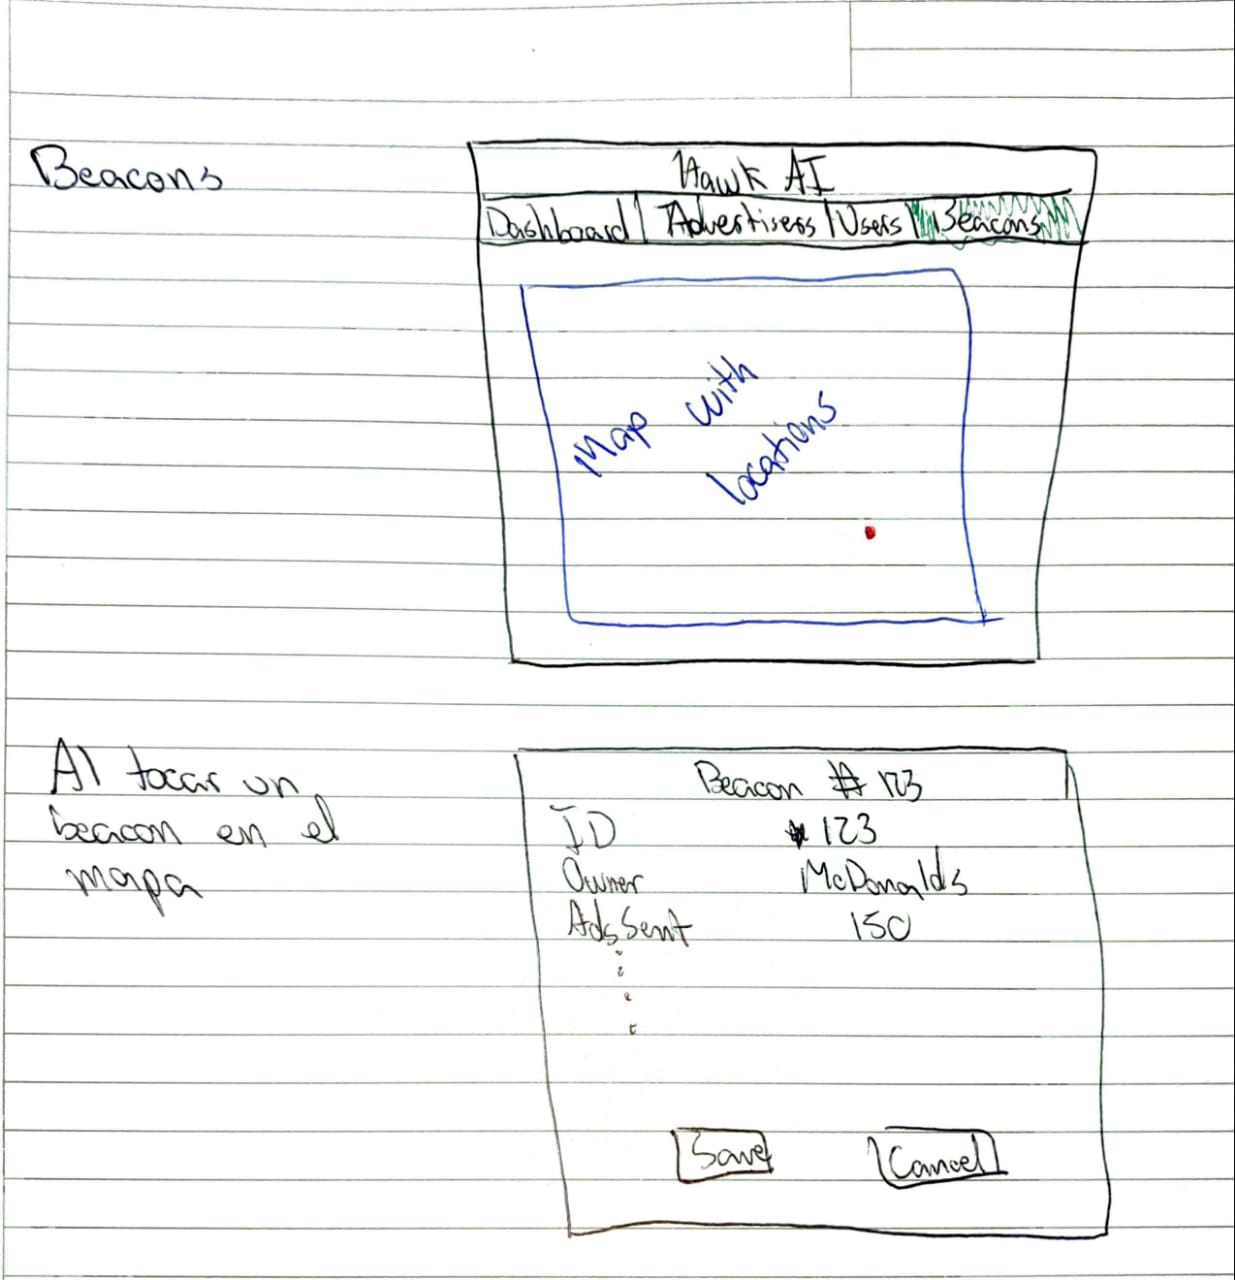 Beacons
Hawk AI
Dashboard | Advertisers | Users | Beacons
Map with
locations
Al tocar un
beacon en el
mapa
Beacon # 123
ID 123
Owner McDonalds
Ads Sent 150
Save Cancel